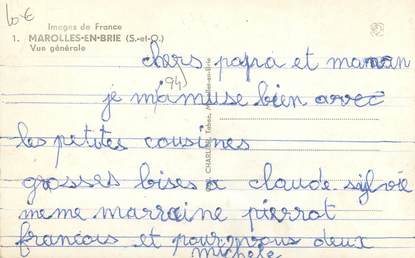 10€
Images de France
1. MAROLLES-EN-BRIE (S.-et-O.)
Vue générale
(94)
chers papa et maman
je m'amuse bien avec
les petites cousines
grosses bises a claude sylvie
meme marraine pierrot
francois et pour vous deux
michele
CHARLES, Tabac, Marolles-en-Brie